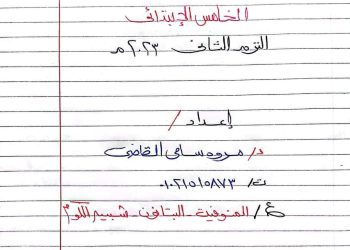 الخامس الإبتدائى
الترم الثانى ٢٠٢٣ م
إعداد /
د/ مروه سامى القاضى
ت/ ٠١٠٢١٥١٥٨٧٣
ع/ المنوفية - البتانون - شبين الكوم